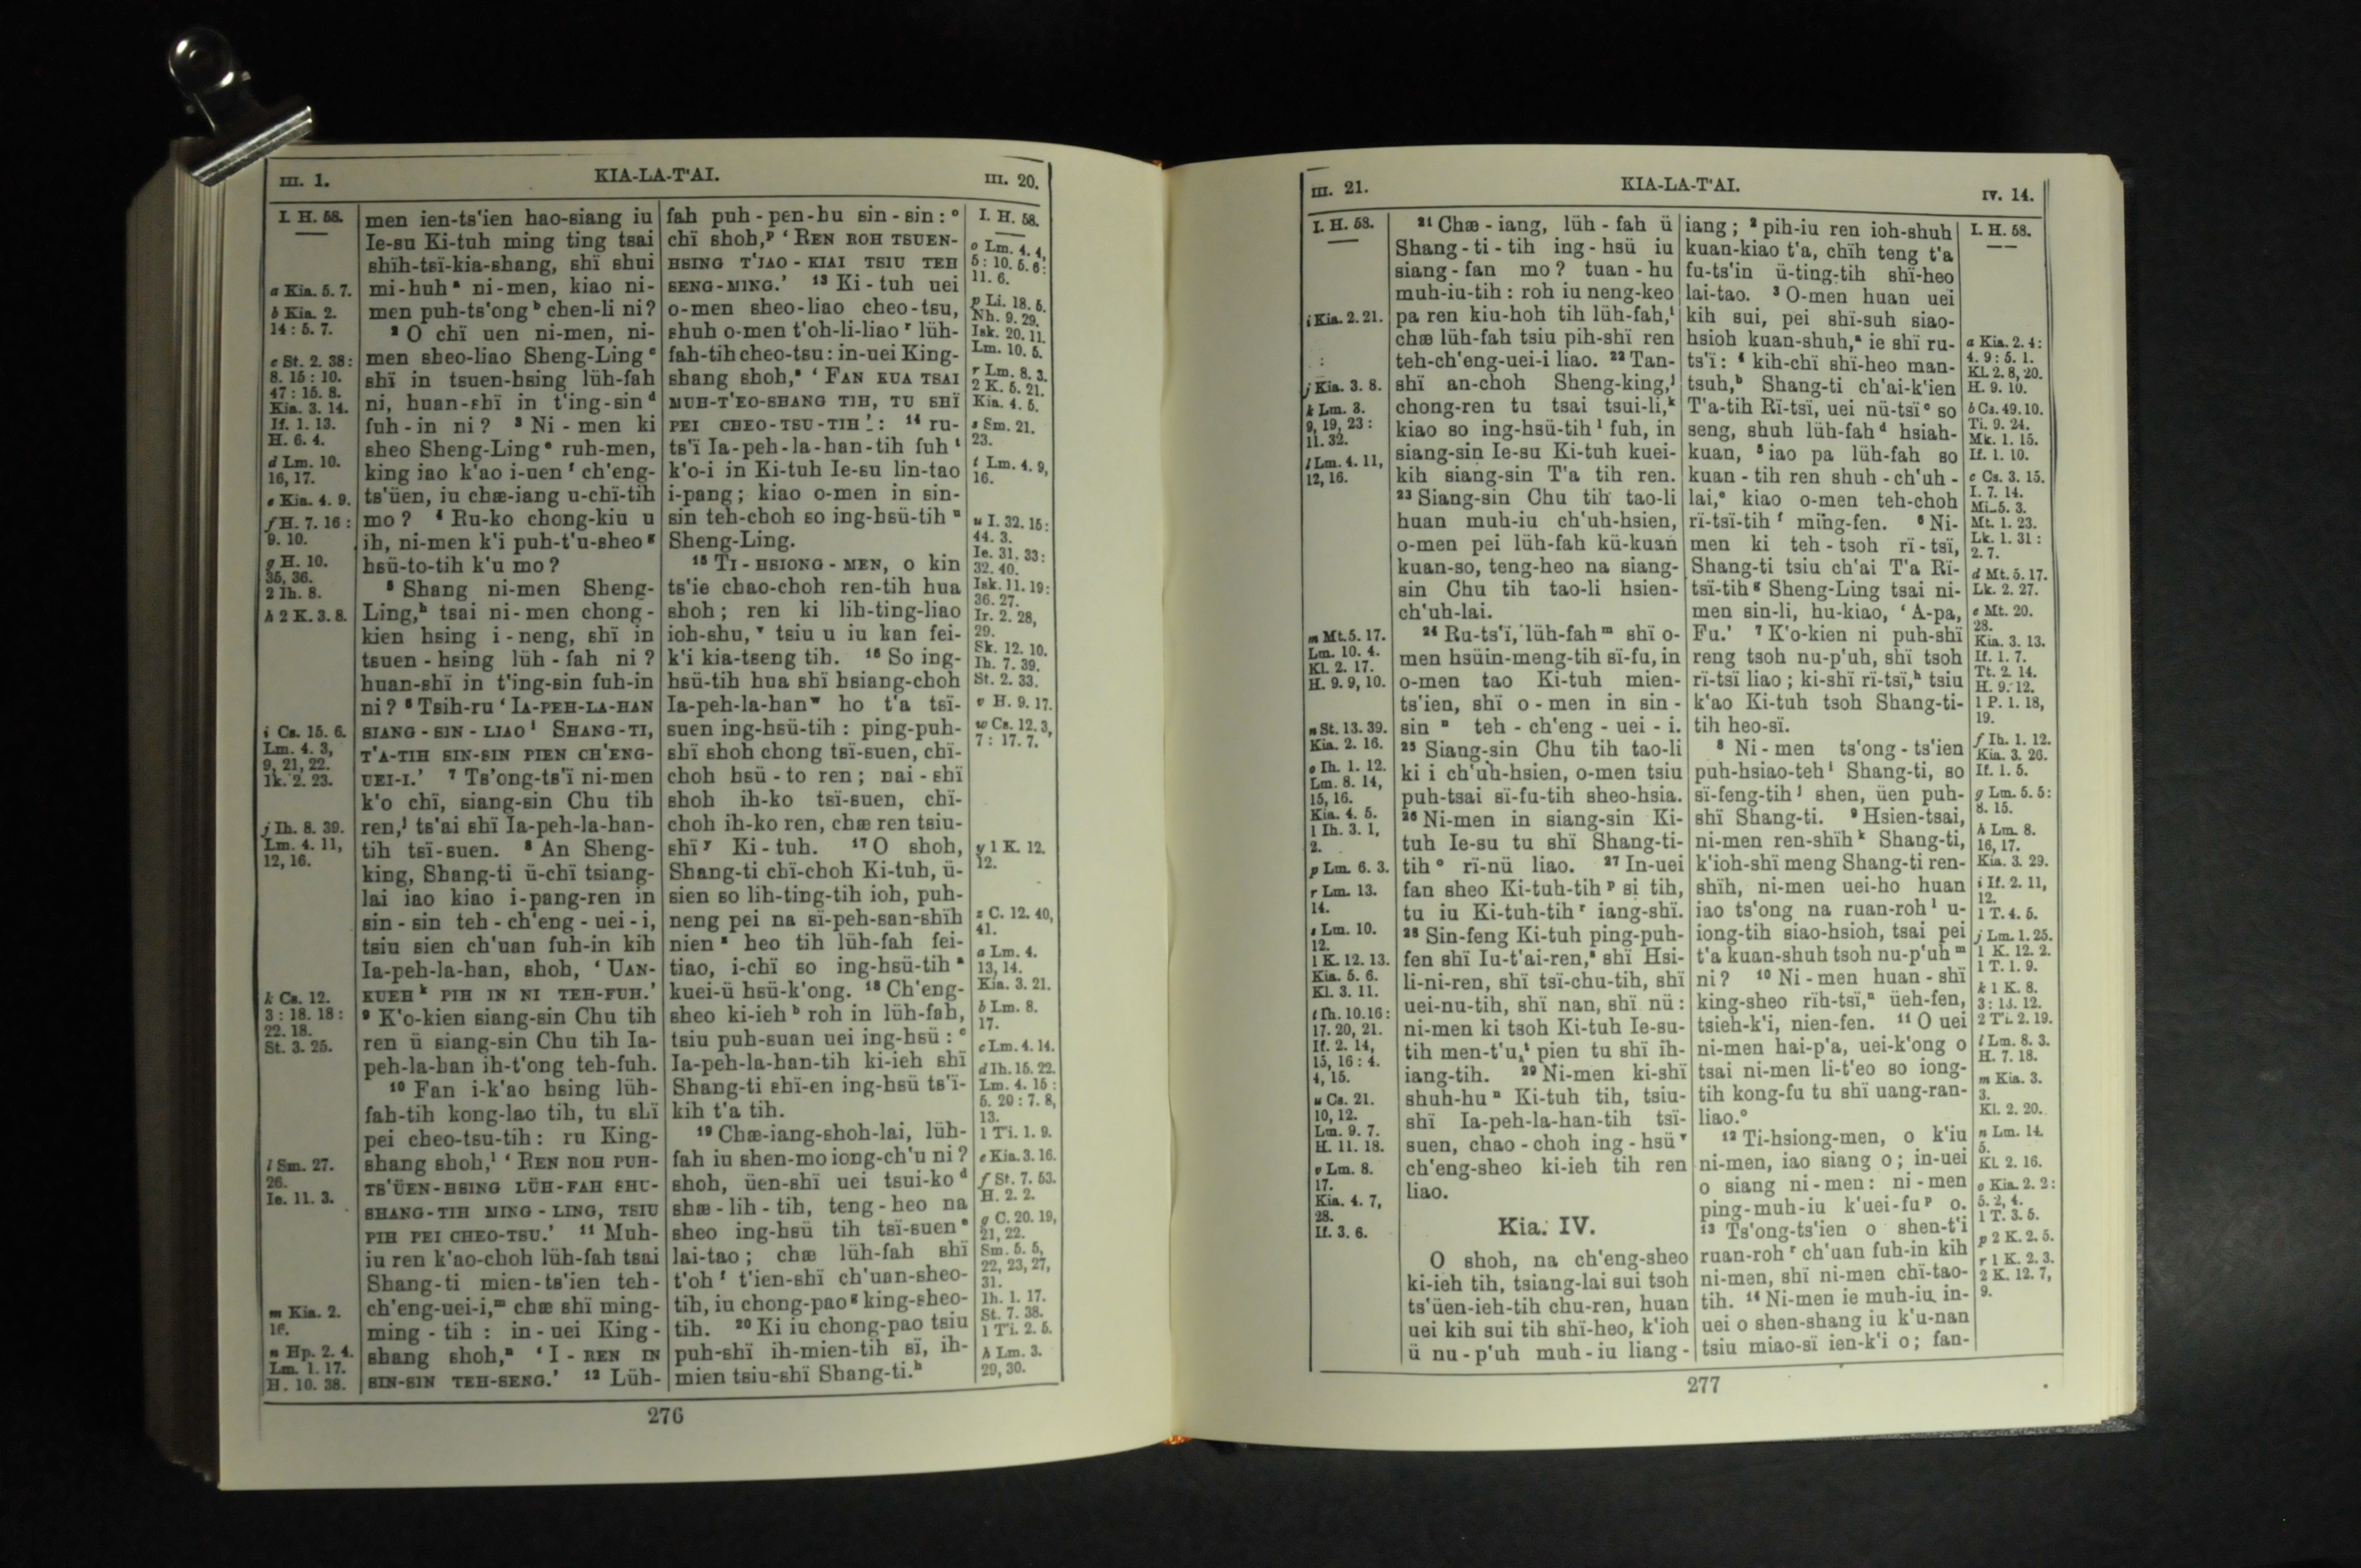 III. 1.
KIA-LA-T'AI.
III. 20.
I. H. 58.
a Kia. 5. 7.
b Kia. 2.
14 : 5. 7.
c St. 2. 38:
8. 15 : 10.
47 : 15. 8.
Kia. 3. 14.
If. 1. 13.
H. 6. 4.
d Lm. 10.
16, 17.
e Kia. 4. 9.
f H. 7. 16 :
9. 10.
g H. 10.
35, 36.
2 Ih. 8.
h 2 K. 3. 8.
i Cs. 15. 6.
Lm. 4. 3,
9, 21, 22.
Ik. 2. 23.
j Ih. 8. 39.
Lm. 4. 11,
12, 16.
k Cs. 12.
3 : 18. 18 :
22. 18.
St. 3. 25.
l Sm. 27.
26.
Ie. 11. 3.
m Kia. 2.
16.
n Hp. 2. 4.
Lm. 1. 17.
H. 10. 38.
men ien-ts'ien hao-siang iu
Ie-su Ki-tuh ming ting tsai
shïh-tsï-kia-shang, shï shui
mi-huh ᵃ ni-men, kiao ni-
men puh-ts'ong ᵇ chen-li ni?
² O chï uen ni-men, ni-
men sheo-liao Sheng-Ling ᶜ
shï in tsuen-hsing lüh-fah
ni, huan-shï in t'ing-sin ᵈ
fuh-in ni? ³ Ni-men ki
sheo Sheng-Ling ᵉ ruh-men,
king iao k'ao i-uen ᶠ ch'eng-
ts'üen, iu chæ-iang u-chï-tih
mo? ⁴ Ru-ko chong-kiu u
ih, ni-men k'i puh-t'u-sheo ᵍ
hsü-to-tih k'u mo?
⁵ Shang ni-men Sheng-
Ling,ʰ tsai ni-men chong-
kien hsing i-neng, shï in
tsuen-hsing lüh-fah ni?
huan-shï in t'ing-sin fuh-in
ni? ⁶ Tsih-ru 'IA-PEH-LA-HAN
SIANG-SIN-LIAO ⁱ SHANG-TI,
T'A-TIH SIN-SIN PIEN CH'ENG-
UEI-I.' ⁷ Ts'ong-ts'ï ni-men
k'o chï, siang-sin Chu tih
ren,ʲ ts'ai shï Ia-peh-la-han-
tih tsï-suen. ⁸ An Sheng-
king, Shang-ti ü-chï tsiang-
lai iao kiao i-pang-ren in
sin-sin teh-ch'eng-uei-i,
tsiu sien ch'uan fuh-in kih
Ia-peh-la-han, shoh, 'UAN-
KUEH ᵏ PIH IN NI TEH-FUH.'
⁹ K'o-kien siang-sin Chu tih
ren ü siang-sin Chu tih Ia-
peh-la-han ih-t'ong teh-fuh.
¹⁰ Fan i-k'ao hsing lüh-
fah-tih kong-lao tih, tu shï
pei cheo-tsu-tih: ru King-
shang shoh,ˡ 'REN ROH PUH-
TS'ÜEN-HSING LÜH-FAH SHU-
SHANG-TIH MING-LING, TSIU
PIH PEI CHEO-TSU.' ¹¹ Muh-
iu ren k'ao-choh lüh-fah tsai
Shang-ti mien-ts'ien teh-
ch'eng-uei-i,ᵐ chæ shï ming-
ming-tih: in-uei King-
shang shoh,ⁿ 'I-REN IN
SIN-SIN TEH-SENG.' ¹² Lüh-
fah puh-pen-hu sin-sin: ᵒ
chï shoh,ᵖ 'REN ROH TSUEN-
HSING T'IAO-KIAI TSIU TEH
SENG-MING.' ¹³ Ki-tuh uei
o-men sheo-liao cheo-tsu,
shuh o-men t'oh-li-liao ʳ lüh-
fah-tih cheo-tsu: in-uei King-
shang shoh,ˢ 'FAN KUA TSAI
MUH-T'EO-SHANG TIH, TU SHÏ
PEI CHEO-TSU-TIH': ¹⁴ ru-
ts'ï Ia-peh-la-han-tih fuh ᵗ
k'o-i in Ki-tuh Ie-su lin-tao
i-pang; kiao o-men in sin-
sin teh-choh so ing-hsü-tih ᵘ
Sheng-Ling.
¹⁵ TI-HSIONG-MEN, o kin
ts'ie chao-choh ren-tih hua
shoh; ren ki lih-ting-liao
ioh-shu, ᵛ tsiu u iu kan fei-
k'i kia-tseng tih. ¹⁶ So ing-
hsü-tih hua shï hsiang-choh
Ia-peh-la-han ʷ ho t'a tsï-
suen ing-hsü-tih: ping-puh-
shï shoh chong tsï-suen, chï-
choh hsü-to ren; nai-shï
shoh ih-ko tsï-suen, chï-
choh ih-ko ren, chæ ren tsiu-
shï ʸ Ki-tuh. ¹⁷ O shoh,
Shang-ti chï-choh Ki-tuh, ü-
sien so lih-ting-tih ioh, puh-
neng pei na sï-peh-san-shïh
nien ᶻ heo tih lüh-fah fei-
tiao, i-chï so ing-hsü-tih ᵃ
kuei-ü hsü-k'ong. ¹⁸ Ch'eng-
sheo ki-ieh ᵇ roh in lüh-fah,
tsiu puh-suan uei ing-hsü: ᶜ
Ia-peh-la-han-tih ki-ieh shï
Shang-ti shï-en ing-hsü ts'ï-
kih t'a tih.
¹⁹ Chæ-iang-shoh-lai, lüh-
fah iu shen-mo iong-ch'u ni?
shoh, üen-shï uei tsui-ko ᵈ
shæ-lih-tih, teng-heo na
sheo ing-hsü tih tsï-suen ᵉ
lai-tao; chæ lüh-fah shï
t'oh ᶠ t'ien-shï ch'uan-sheo-
tih, iu chong-pao ᵍ king-sheo-
tih. ²⁰ Ki iu chong-pao tsiu
puh-shï ih-mien-tih sï, ih-
mien tsiu-shï Shang-ti.ʰ
I. H. 58.
o Lm. 4. 4,
5 : 10. 5. 6 :
11. 6.
p Li. 18. 5.
Nh. 9. 29.
Isk. 20. 11.
Lm. 10. 5.
r Lm. 8. 3.
2 K. 5. 21.
Kia. 4. 5.
s Sm. 21.
23.
t Lm. 4. 9,
16.
u I. 32. 15 :
44. 3.
Ie. 31. 33 :
32. 40.
Isk. 11. 19 :
36. 27.
Ir. 2. 28,
29.
Sk. 12. 10.
Ih. 7. 39.
St. 2. 33.
v H. 9. 17.
w Cs. 12. 3,
7 : 17. 7.
y 1 K. 12.
12.
z C. 12. 40,
41.
a Lm. 4.
13, 14.
Kia. 3. 21.
b Lm. 8.
17.
c Lm. 4. 14.
d Ih. 15. 22.
Lm. 4. 15 :
5. 20 : 7. 8,
13.
1 Ti. 1. 9.
e Kia. 3. 16.
f St. 7. 53.
H. 2. 2.
g C. 20. 19,
21, 22.
Sm. 5. 5,
22, 23, 27,
31.
Ih. 1. 17.
St. 7. 38.
1 Ti. 2. 5.
h Lm. 3.
29, 30.
276
III. 21.
KIA-LA-T'AI.
IV. 14.
I. H. 58.
i Kia. 2. 21.
j Kia. 3. 8.
k Lm. 3.
9, 19, 23 :
11. 32.
l Lm. 4. 11,
12, 16.
m Mt. 5. 17.
Lm. 10. 4.
Kl. 2. 17.
H. 9. 9, 10.
n St. 13. 39.
Kia. 2. 16.
o Ih. 1. 12.
Lm. 8. 14,
15, 16.
Kia. 4. 5.
1 Ih. 3. 1,
2.
p Lm. 6. 3.
r Lm. 13.
14.
s Lm. 10.
12.
1 K. 12. 13.
Kia. 5. 6.
Kl. 3. 11.
t Ih. 10. 16 :
17. 20, 21.
If. 2. 14,
15, 16 : 4.
4, 15.
u Cs. 21.
10, 12.
Lm. 9. 7.
H. 11. 18.
v Lm. 8.
17.
Kia. 4. 7,
28.
If. 3. 6.
²¹ Chæ-iang, lüh-fah ü
Shang-ti-tih ing-hsü iu
siang-fan mo? tuan-hu
muh-iu-tih: roh iu neng-keo
pa ren kiu-hoh tih lüh-fah,ⁱ
chæ lüh-fah tsiu pih-shï ren
teh-ch'eng-uei-i liao. ²² Tan-
shï an-choh Sheng-king,ʲ
chong-ren tu tsai tsui-li,ᵏ
kiao so ing-hsü-tih ˡ fuh, in
siang-sin Ie-su Ki-tuh kuei-
kih siang-sin T'a tih ren.
²³ Siang-sin Chu tih tao-li
huan muh-iu ch'uh-hsien,
o-men pei lüh-fah kü-kuan
kuan-so, teng-heo na siang-
sin Chu tih tao-li hsien-
ch'uh-lai.
²⁴ Ru-ts'ï, lüh-fah ᵐ shï o-
men hsüin-meng-tih sï-fu, in
o-men tao Ki-tuh mien-
ts'ien, shï o-men in sin-
sin ⁿ teh-ch'eng-uei-i.
²⁵ Siang-sin Chu tih tao-li
ki i ch'uh-hsien, o-men tsiu
puh-tsai sï-fu-tih sheo-hsia.
²⁶ Ni-men in siang-sin Ki-
tuh Ie-su tu shï Shang-ti-
tih ᵒ rï-nü liao. ²⁷ In-uei
fan sheo Ki-tuh-tih ᵖ si tih,
tu iu Ki-tuh-tih ʳ iang-shï.
²⁸ Sin-feng Ki-tuh ping-puh-
fen shï Iu-t'ai-ren,ˢ shï Hsi-
li-ni-ren, shï tsï-chu-tih, shï
uei-nu-tih, shï nan, shï nü:
ni-men ki tsoh Ki-tuh Ie-su-
tih men-t'u,ᵗ pien tu shï ih-
iang-tih. ²⁹ Ni-men ki-shï
shuh-hu ᵘ Ki-tuh tih, tsiu-
shï Ia-peh-la-han-tih tsï-
suen, chao-choh ing-hsü ᵛ
ch'eng-sheo ki-ieh tih ren
liao.
Kia. IV.
O shoh, na ch'eng-sheo
ki-ieh tih, tsiang-lai sui tsoh
ts'üen-ieh-tih chu-ren, huan
uei kih sui tih shï-heo, k'ioh
ü nu-p'uh muh-iu liang-
iang; ² pih-iu ren ioh-shuh
kuan-kiao t'a, chïh teng t'a
fu-ts'in ü-ting-tih shï-heo
lai-tao. ³ O-men huan uei
kih sui, pei shï-suh siao-
hsioh kuan-shuh,ᵃ ie shï ru-
ts'ï: ⁴ kih-chï shï-heo man-
tsuh,ᵇ Shang-ti ch'ai-k'ien
T'a-tih Rï-tsï, uei nü-tsï ᶜ so
seng, shuh lüh-fah ᵈ hsiah-
kuan, ⁵ iao pa lüh-fah so
kuan-tih ren shuh-ch'uh-
lai,ᵉ kiao o-men teh-choh
rï-tsï-tih ᶠ ming-fen. ⁶ Ni-
men ki teh-tsoh rï-tsï,
Shang-ti tsiu ch'ai T'a Rï-
tsï-tih ᵍ Sheng-Ling tsai ni-
men sin-li, hu-kiao, 'A-pa,
Fu.' ⁷ K'o-kien ni puh-shï
reng tsoh nu-p'uh, shï tsoh
rï-tsï liao; ki-shï rï-tsï,ʰ tsiu
k'ao Ki-tuh tsoh Shang-ti-
tih heo-sï.
⁸ Ni-men ts'ong-ts'ien
puh-hsiao-teh ⁱ Shang-ti, so
sï-feng-tih ʲ shen, üen puh-
shï Shang-ti. ⁹ Hsien-tsai,
ni-men ren-shïh ᵏ Shang-ti,
k'ioh-shï meng Shang-ti ren-
shïh, ni-men uei-ho huan
iao ts'ong na ruan-roh ˡ u-
iong-tih siao-hsioh, tsai pei
t'a kuan-shuh tsoh nu-p'uh ᵐ
ni? ¹⁰ Ni-men huan-shï
king-sheo rïh-tsï,ⁿ üeh-fen,
tsieh-k'i, nien-fen. ¹¹ O uei
ni-men hai-p'a, uei-k'ong o
tsai ni-men li-t'eo so iong-
tih kong-fu tu shï uang-ran-
liao.ᵒ
¹² Ti-hsiong-men, o k'iu
ni-men, iao siang o; in-uei
o siang ni-men: ni-men
ping-muh-iu k'uei-fu ᵖ o.
¹³ Ts'ong-ts'ien o shen-t'i
ruan-roh ʳ ch'uan fuh-in kih
ni-men, shï ni-men chï-tao-
tih. ¹⁴ Ni-men ie muh-iu in-
uei o shen-shang iu k'u-nan
tsiu miao-sï ien-k'i o; fan-
I. H. 58.
a Kia. 2. 4 :
4. 9 : 5. 1.
Kl. 2. 8, 20.
H. 9. 10.
b Cs. 49. 10.
Ti. 9. 24.
Mk. 1. 15.
If. 1. 10.
c Cs. 3. 15.
I. 7. 14.
Mi. 5. 3.
Mt. 1. 23.
Lk. 1. 31 :
2. 7.
d Mt. 5. 17.
Lk. 2. 27.
e Mt. 20.
28.
Kia. 3. 13.
If. 1. 7.
Tt. 2. 14.
H. 9. 12.
1 P. 1. 18,
19.
f Ih. 1. 12.
Kia. 3. 26.
If. 1. 5.
g Lm. 5. 5 :
8. 15.
h Lm. 8.
16, 17.
Kia. 3. 29.
i If. 2. 11,
12.
1 T. 4. 5.
j Lm. 1. 25.
1 K. 12. 2.
1 T. 1. 9.
k 1 K. 8.
3 : 13. 12.
2 Ti. 2. 19.
l Lm. 8. 3.
H. 7. 18.
m Kia. 3.
3.
Kl. 2. 20.
n Lm. 14.
5.
Kl. 2. 16.
o Kia. 2. 2 :
5. 2, 4.
1 T. 3. 5.
p 2 K. 2. 5.
r 1 K. 2. 3.
2 K. 12. 7,
9.
277